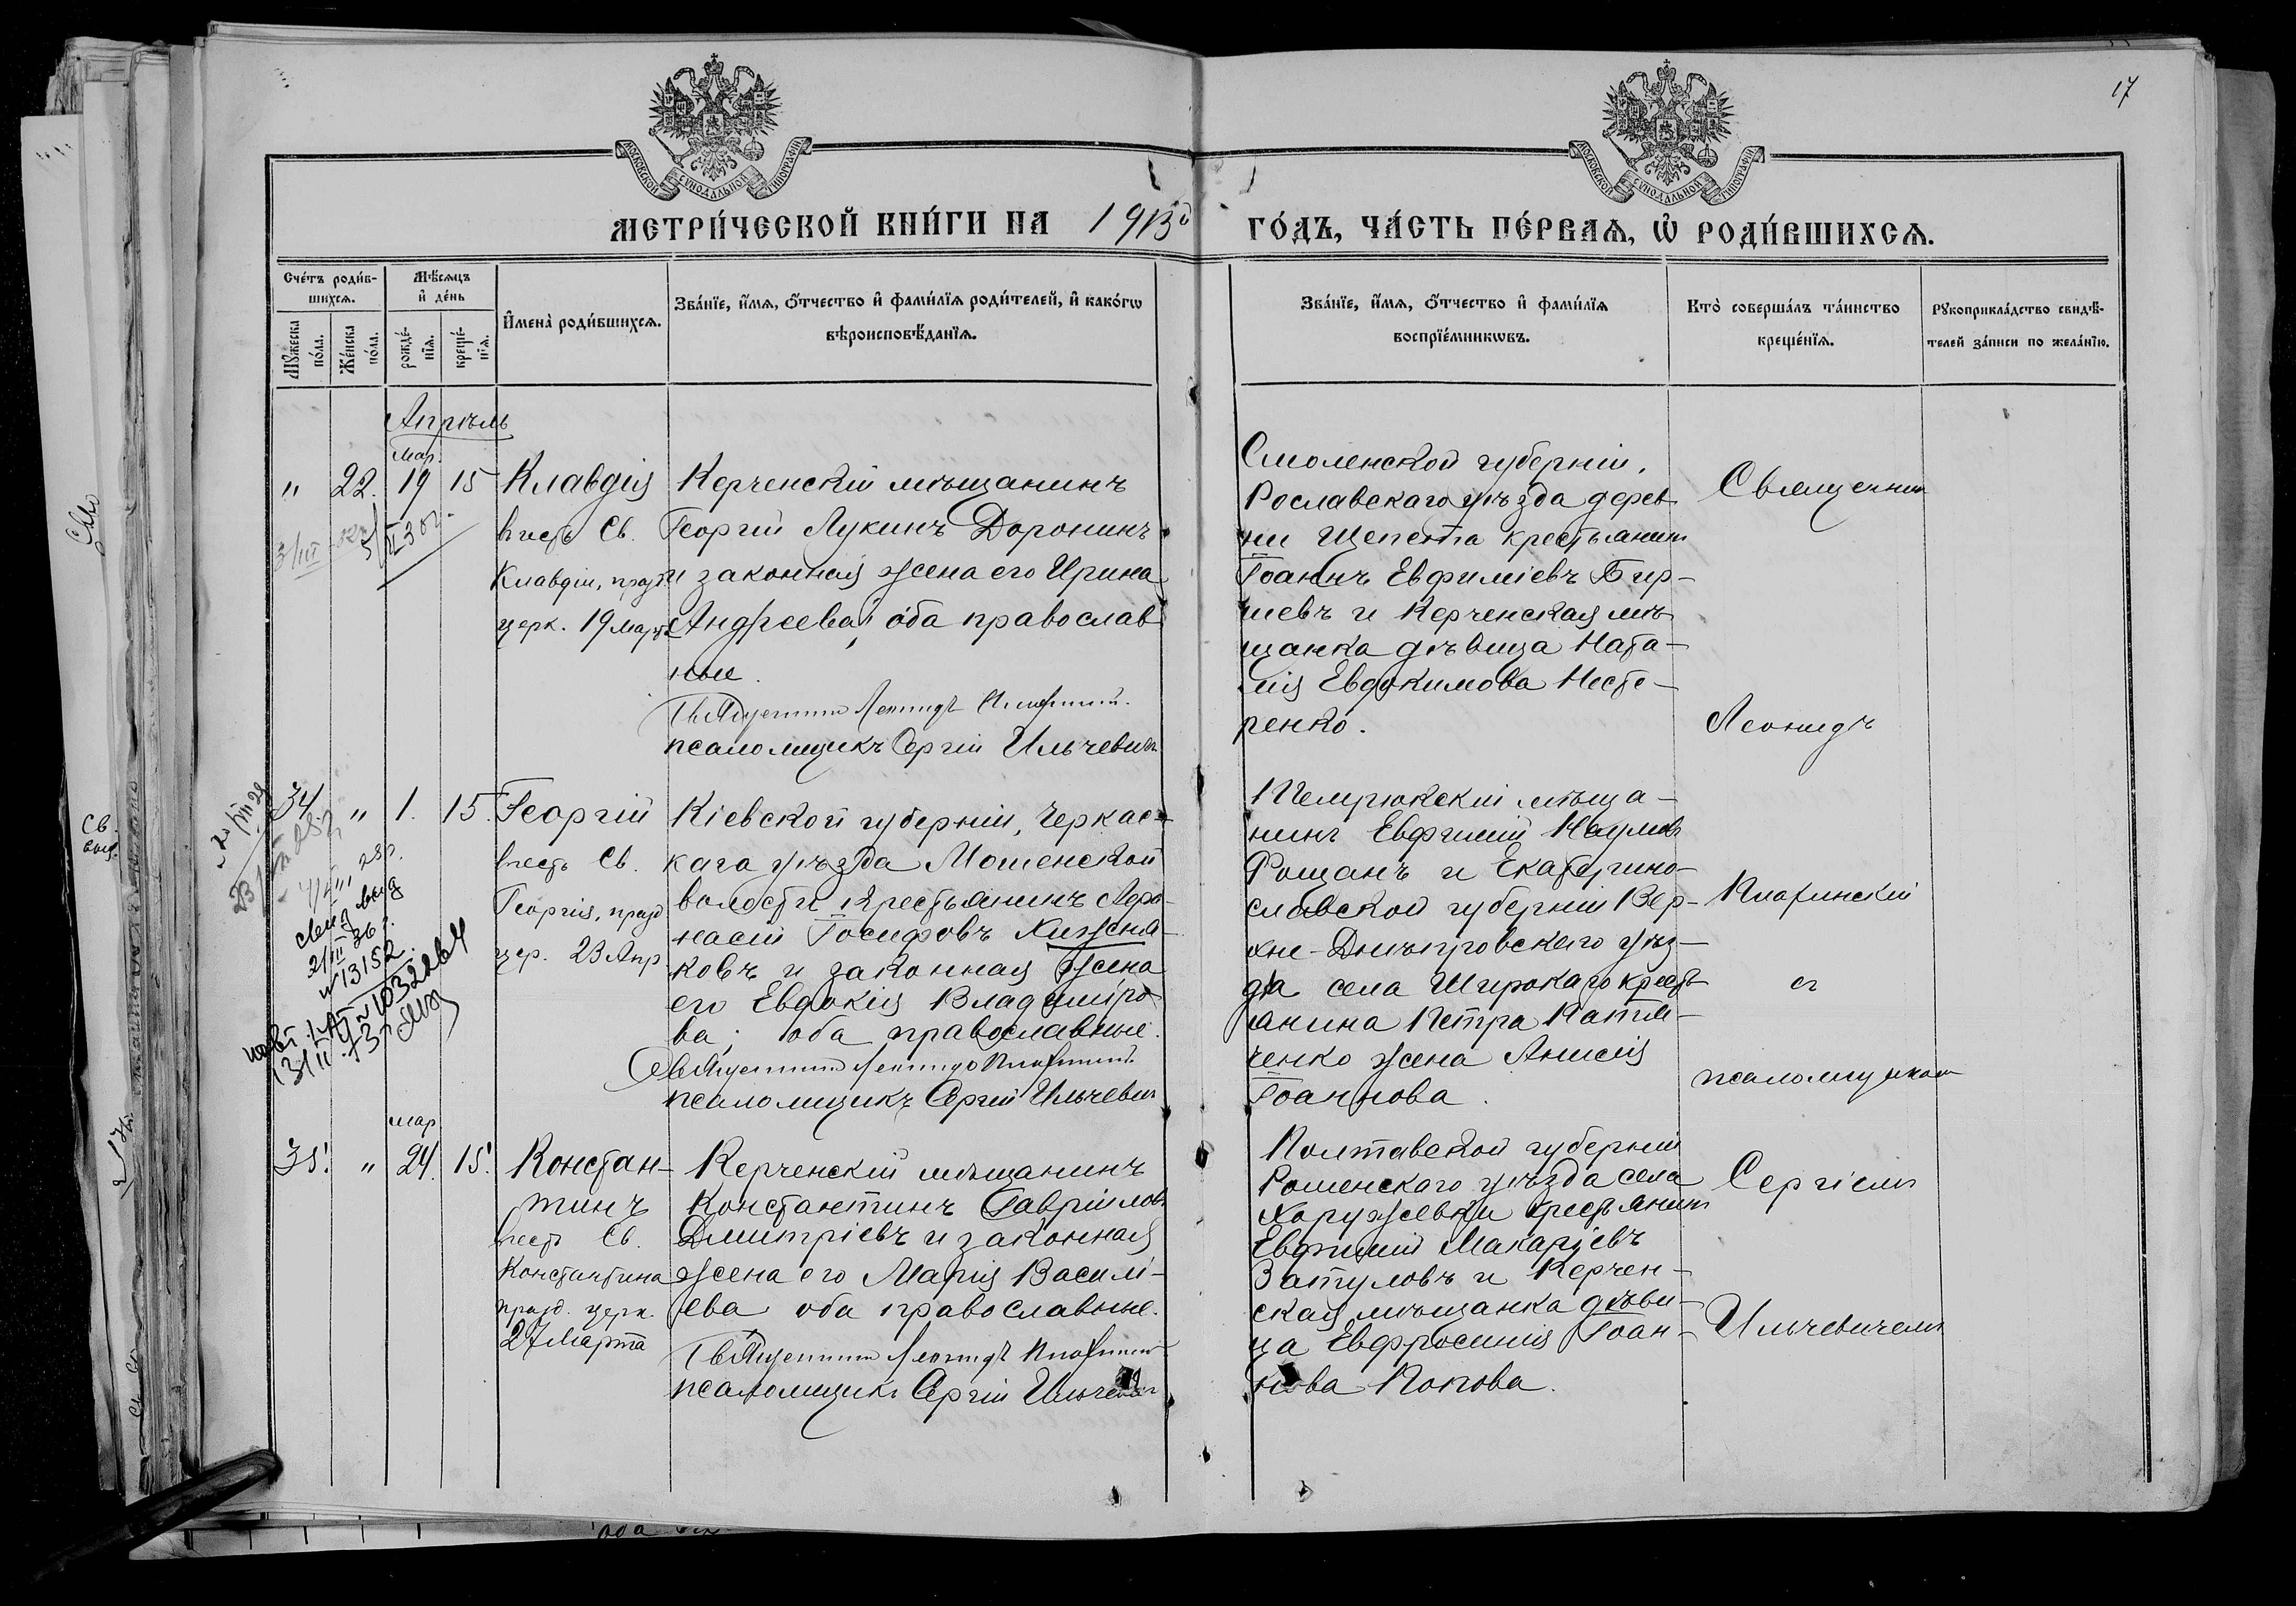 17
МОСКОВСКОЙ СѴНОДАЛЬНОЙ ТИПОГРАФІИ
МОСКОВСКОЙ СѴНОДАЛЬНОЙ ТИПОГРАФІИ
МЕТРИ́ЧЕСКОЙ КНИ́ГИ НА 1913й ГО́ДЪ, ЧА́СТЬ ПЕ́РВАѦ, Ѡ҆ РОДИ́ВШИХСѦ.
Сче́тъ роди́в-
шихсѧ.
Мꙋ́жеска
по́ла.
Же́нска
по́ла.
Мѣ́сѧцъ
и҆ де́нь
рожде́-
нїѧ.
креще́-
нїѧ.
И҆мена̀ роди́вшихсѧ.
Зва́нїе, и҆́мѧ, ѻ҆́тчество и҆ фами́лїѧ роди́телей, и҆ како́гѡ
вѣроисповѣ́данїѧ.
Зва́нїе, и҆́мѧ, ѻ҆́тчество и҆ фами́лїѧ
воспрїе́мникѡвъ.
Кто̀ соверша́лъ та́инство
креще́нїѧ.
Рꙋкоприкла́дство свидѣ́-
телей за́писи по жела́нїю.
Апрѣль
Мар.
" 22. 19 15
Клавдія
въ честь Св.
Клавдіи, празд
церк. 19 Марта
Керченскій мѣщанинъ
Георгій Лукинъ Доронинъ
и законная жена его Ирина
Андреева, оба православ
ные.
Священникъ Леонидъ
псаломщикъ Сергій Ильчевичъ
Смоленской губерніи,
Рославскаго уѣзда дерев
ни Щепета крестьянинъ
Іоаннъ Евфиміевъ Бир-
шевъ и Керченская мѣ
щанка дѣвица Ната-
лія Евдокимова Несте-
ренко.
Священникъ
Леонидъ
34. " 1. 15.
Георгій
въ честь Св.
Георгія, празд
цер. 23 Апр
Кіевской губерніи, Черкас-
каго уѣзда Мошенской
волости крестьянинъ Афа-
насій Іосифовъ Хижня-
ковъ и законная жена
его Евдокія Владиміро
ва; оба православные.
Священникъ Леонидъ
псаломщикъ Сергій Ильчевичъ
Темрюкскій мѣща-
нинъ Евфимій Наумовъ
Фощанъ и Екатерино-
славской губерніи Вер-
хне-Днѣпровскаго уѣз-
да села Широкаго кресть
янина Петра
ченко жена Анисія
Іоаннова.
съ
псаломщикомъ
13152
мар
35. " 24. 15.
Констан-
тинъ
въ честь Св.
Константина
празд. церк.
27 Марта
Керченскій мѣщанинъ
Константинъ Гавріиловъ
Дмитріевъ и законная
жена его Марія Василі-
ева оба православные.
Священникъ Леонидъ
псаломщикъ Сергій Ильчевичъ
Полтавской губерніи
Роменскаго уѣзда села
Хоружевки крестьянинъ
Евфимій Макаріевъ
Затуловъ и Керчен-
ская мѣщанка дѣви-
ца Евфросинія Іоан-
нова Попова.
Сергіемъ
Ильчевичемъ